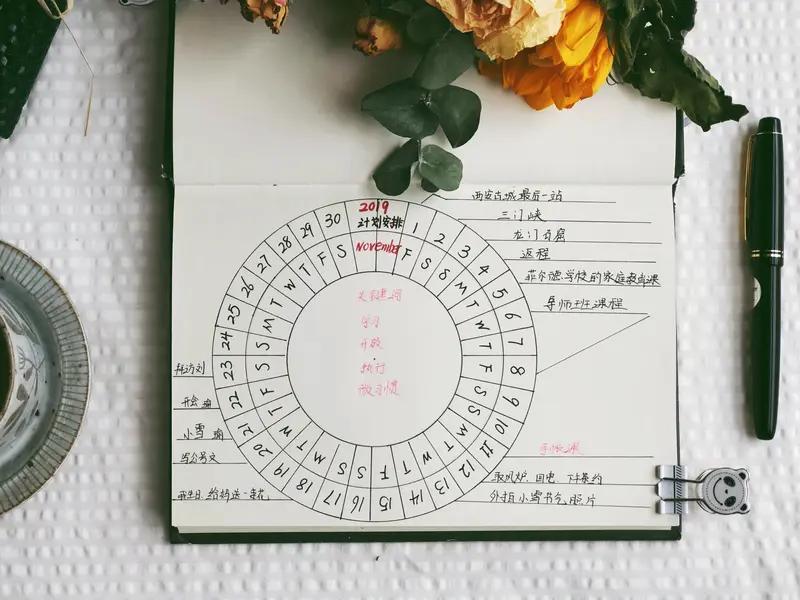 2019
计划安排
November
1 2 3 4 5 6 7 8 9 10 11 12 13 14 15 16 17 18 19 20 21 22 23 24 25 26 27 28 29 30
F S S M T W T F S S M T W T F S S M T W T F S S M T W T F S
关键词
学习
开放
执行
微习惯
西安古城最后一站
三门峡
龙门石窟
返程
菲尔德学校的家庭教育课
导师班课程
取风炉、回电、下午茶约
外拍小雪节气照片
拜访刘
开会
小雪
写公号文
生日、给妈送一束花